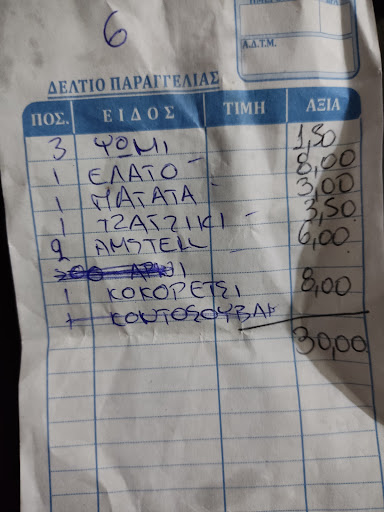 6
Α.Δ.Τ.Μ.
ΔΕΛΤΙΟ ΠΑΡΑΓΓΕΛΙΑΣ
ΠΟΣ. ΕΙΔΟΣ ΤΙΜΗ ΑΞΙΑ
3 ΨΩΜΙ 1,50
1 ΕΛΑΤΟ 8,00
1 ΠΑΤΑΤΑ 3,00
1 ΤΖΑΤΖΙΚΙ 3,50
2 AMSTEL 6,00
1 ΚΟΚΟΡΕΤΣΙ 8,00
1 ΚΟΝΤΟΣΟΥΒΛΙ
30,00